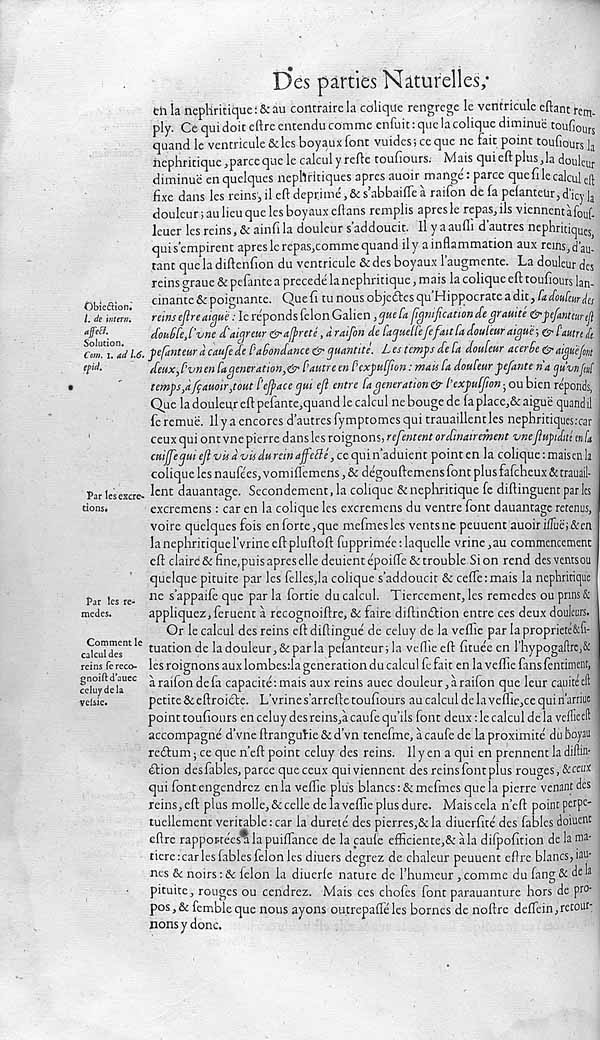 Des parties Naturelles,
en la nephritique: & au contraire la colique rengrege le ventricule estant rem-
ply. Ce qui doit estre entendu comme ensuit: que la colique diminuë tousiours
quand le ventricule & les boyaux sont vuides; ce que ne fait point tousiours la
nephritique, parce que le calcul y reste tousiours. Mais qui est plus, la douleur
diminuë en quelques nephritiques apres auoir mangé: parce que si le calcul est
fixe dans les reins, il est deprimé, & s'abbaisse à raison de sa pesanteur, d'icy la
douleur; au lieu que les boyaux estans remplis apres le repas, ils viennent à sous-
leuer les reins, & ainsi la douleur s'addoucit. Il y a aussi d'autres nephritiques,
qui s'empirent apres le repas, comme quand il y a inflammation aux reins, d'au-
tant que la distension du ventricule & des boyaux l'augmente. La douleur des
reins graue & pesante a precedé la nephritique, mais la colique est tousiours lan-
cinante & poignante. Que si tu nous objectes qu'Hippocrate a dit, la douleur des
reins estre aiguë: Ie réponds selon Galien, que la signification de grauité & pesanteur est
double, l'vne d'aigreur & aspreté, à raison de laquelle se fait la douleur aiguë; & l'autre de
pesanteur à cause de l'abondance & quantité. Les temps de la douleur acerbe & aiguë sont
deux, l'vn en la generation, & l'autre en l'expulsion: mais la douleur pesante n'a qu'vn seul
temps, à sçauoir, tout l'espace qui est entre la generation & l'expulsion; ou bien réponds,
Que la douleur est pesante, quand le calcul ne bouge de sa place, & aiguë quand il
se remuë. Il y a encores d'autres symptomes qui trauaillent les nephritiques: car
ceux qui ont vne pierre dans les roignons, resentent ordinairement vne stupidité en la
cuisse qui est vis à vis du rein affecté, ce qui n'aduient point en la colique: mais en la
colique les nausées, vomissemens, & dégoustemens sont plus fascheux & trauail-
lent dauantage. Secondement, la colique & nephritique se distinguent par les
excremens: car en la colique les excremens du ventre sont dauantage retenus,
voire quelques fois en sorte, que mesmes les vents ne peuuent auoir issuë; & en
la nephritique l'vrine est plustost supprimée: laquelle vrine, au commencement
est claire & fine, puis apres elle deuient époisse & trouble. Si on rend des vents ou
quelque pituite par les selles, la colique s'addoucit & cesse: mais la nephritique
ne s'appaise que par la sortie du calcul. Tiercement, les remedes ou prins &
appliquez, seruent à recognoistre, & faire distinction entre ces deux douleurs.
Or le calcul des reins est distingué de celuy de la vessie par la proprieté & si-
tuation de la douleur, & par la pesanteur; la vessie est située en l'hypogastre, &
les roignons aux lombes: la generation du calcul se fait en la vessie sans sentiment,
à raison de sa capacité: mais aux reins auec douleur, à raison que leur cauité est
petite & estroicte. L'vrine s'arreste tousiours au calcul de la vessie, ce qui n'arriue
point tousiours en celuy des reins, à cause qu'ils sont deux: le calcul de la vessie est
accompagné d'vne strangurie & d'vn tenesme, à cause de la proximité du boyau
rectum; ce que n'est point celuy des reins. Il y en a qui en prennent la distin-
ction des sables, parce que ceux qui viennent des reins sont plus rouges, & ceux
qui sont engendrez en la vessie plus blancs: & mesmes que la pierre venant des
reins, est plus molle, & celle de la vessie plus dure. Mais cela n'est point perpe-
tuellement veritable: car la dureté des pierres, & la diuersité des sables doiuent
estre rapportées à la puissance de la cause efficiente, & à la disposition de la ma-
tiere: car les sables selon les diuers degrez de chaleur peuuent estre blancs, iau-
nes & noirs: & selon la diuerse nature de l'humeur, comme du sang & de la
pituite, rouges ou cendrez. Mais ces choses sont parauanture hors de pro-
pos, & semble que nous ayons outrepassé les bornes de nostre dessein, retour-
nons y donc.
Obiection.
l. de intern.
affect.
Solution.
Com. 1. ad l. 6.
epid.
Par les excre-
tions.
Par les re-
medes.
Comment le
calcul des
reins se reco-
gnoist d'auec
celuy de la
vessie.